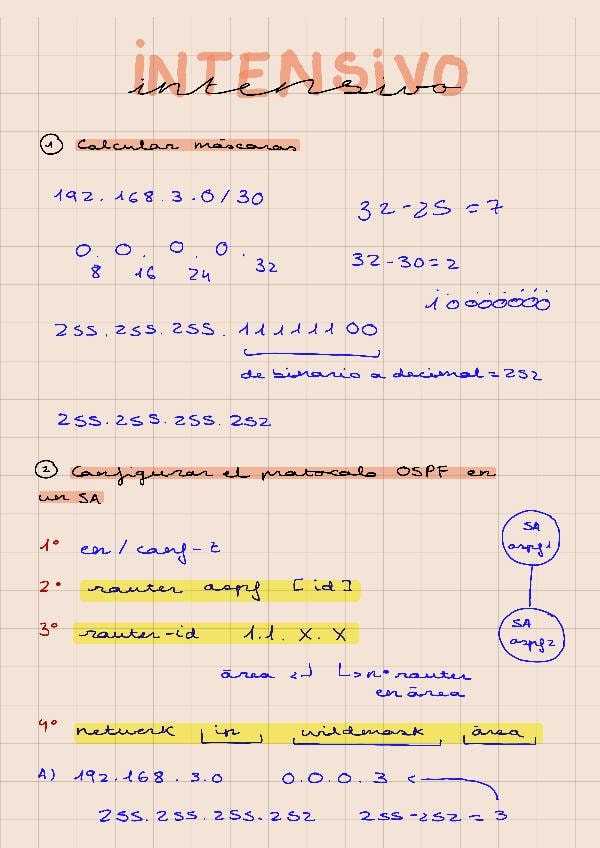 INTENSIVO
intensivo
1 Calcular máscaras
192.168.3.0/30
32-25 = 7
0. 0. 0. 0.
8 16 24 32
32-30=2
10000000
255.255.255.11111100
de binario a decimal = 252
255.255.255.252
2 Configurar el protocolo OSPF en
un SA
1º en / conf-t
2º router ospf [id]
3º router-id 1.1.X.X
área nº router
en área
SA
ospf1
SA
ospf2
4º network in wildmask área
A) 192.168.3.0 0.0.0.3
255.255.255.252 255-252 = 3